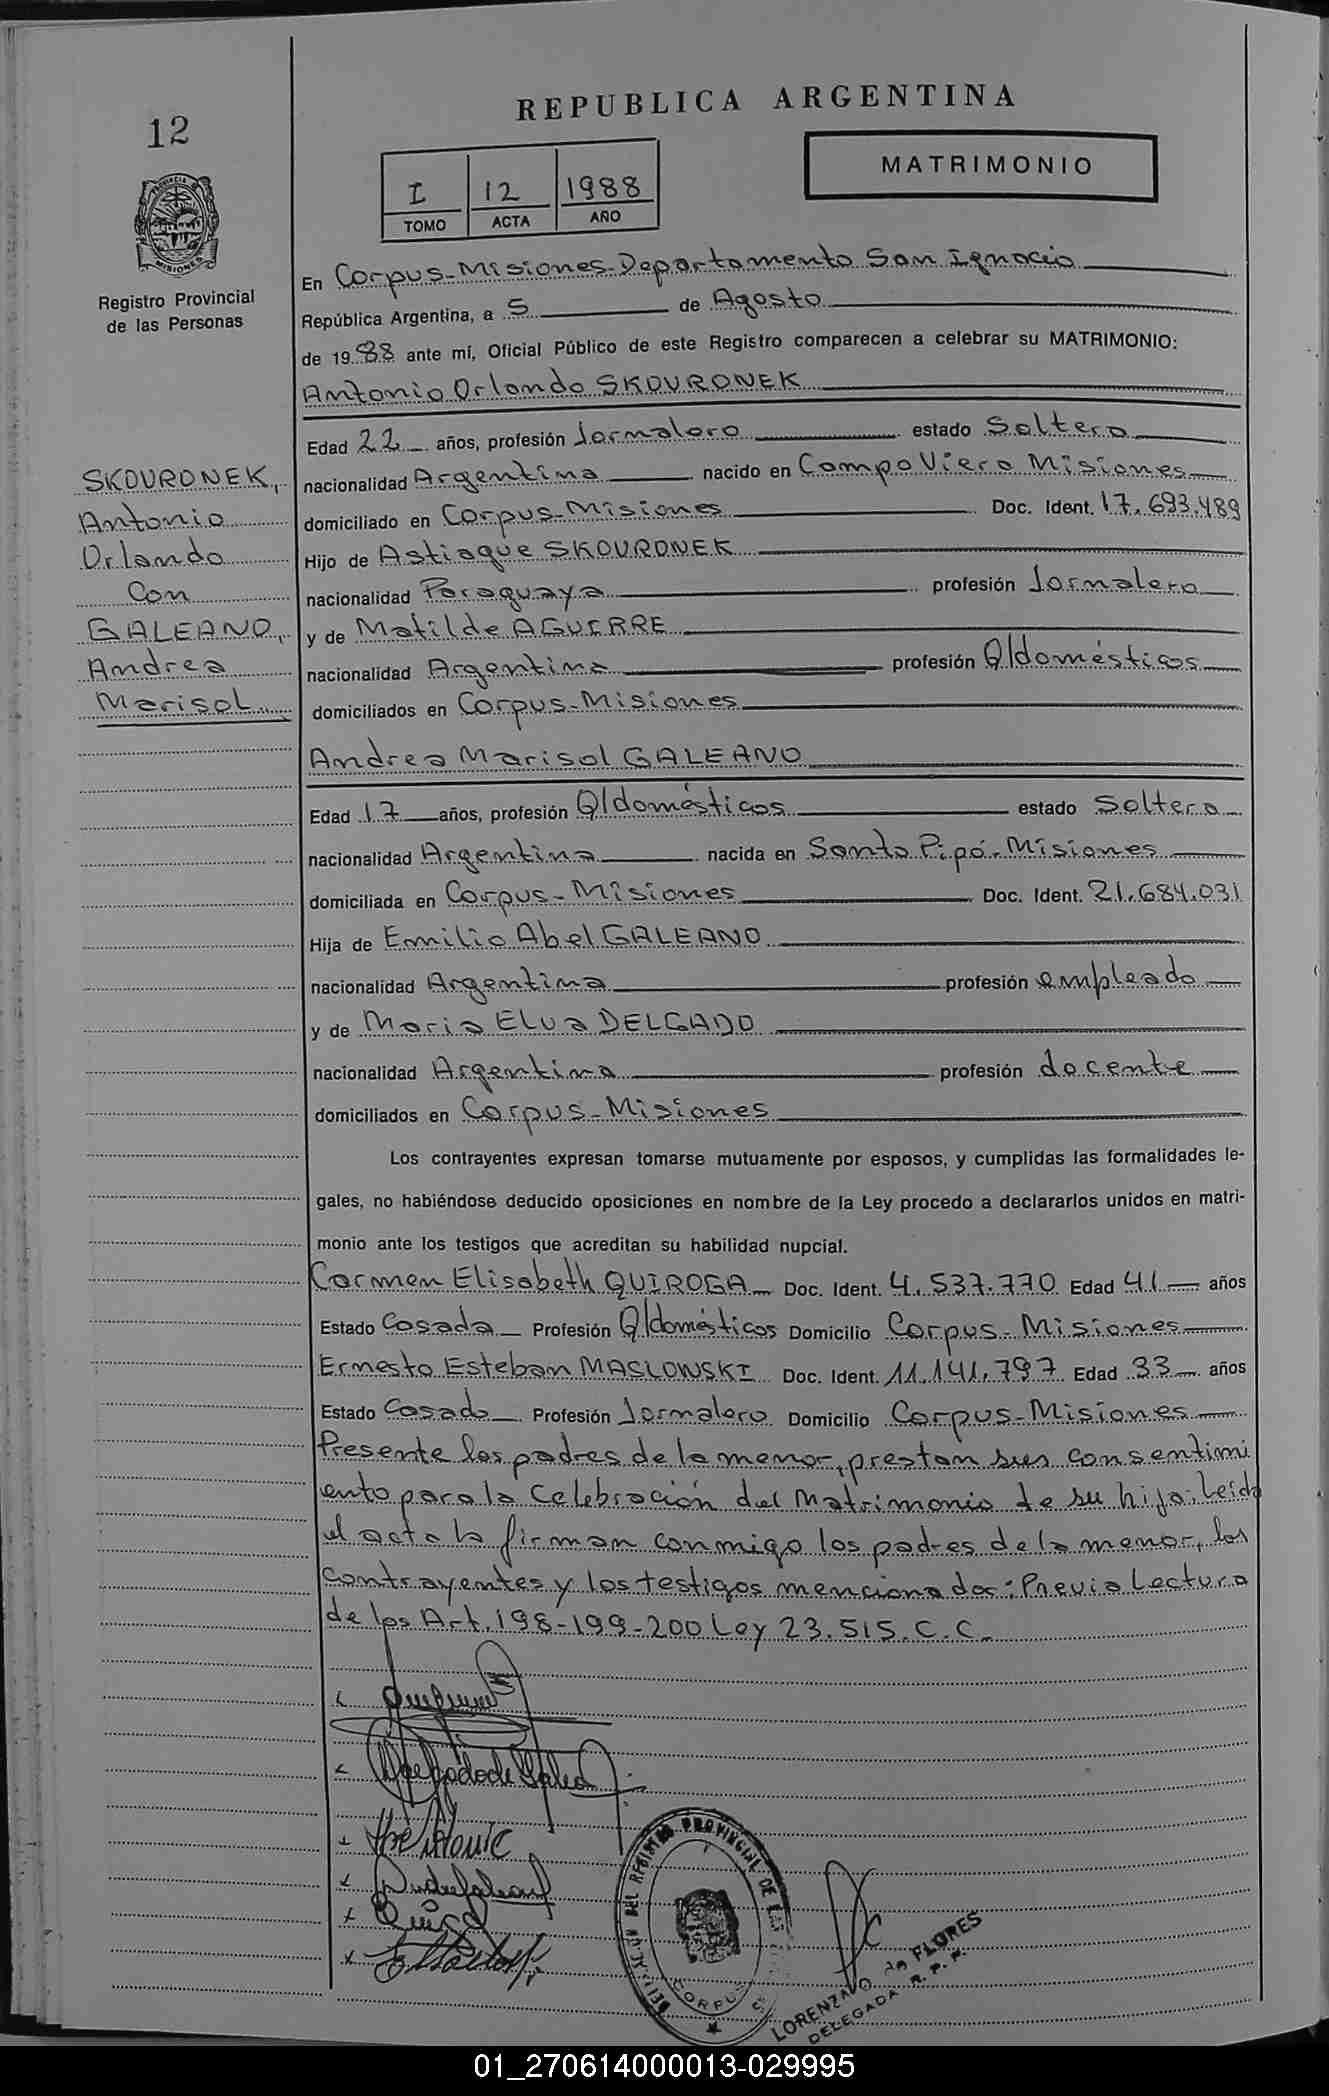 REPUBLICA ARGENTINA
12
MATRIMONIO
I 12 1988
TOMO ACTA AÑO
PROVINCIA
MISIONES
Registro Provincial
de las Personas
En Corpus-Misiones-Departamento San Ignacio
República Argentina, a 5 de Agosto
de 1988 ante mí, Oficial Público de este Registro comparecen a celebrar su MATRIMONIO:
Antonio Orlando SKOURONEK
Edad 22 años, profesión Jornalero estado Soltero
nacionalidad Argentina nacido en Campo Viera Misiones
domiciliado en Corpus-Misiones Doc. Ident. 17.693.489
Hijo de Astiaque SKOURONEK
nacionalidad Paraguaya profesión Jornalero
y de Matilde AGUERRE
nacionalidad Argentina profesión Q/domésticos
domiciliados en Corpus-Misiones
SKOURONEK,
Antonio
Orlando
Con
GALEANO,
Andrea
Marisol
Andrea Marisol GALEANO
Edad 17 años, profesión Q/domésticos estado Soltera
nacionalidad Argentina nacida en Santo Pipó-Misiones
domiciliada en Corpus-Misiones Doc. Ident. 21.684.031
Hija de Emilio Abel GALEANO
nacionalidad Argentina profesión empleado
y de Maria Elva DELGADO
nacionalidad Argentina profesión docente
domiciliados en Corpus-Misiones
Los contrayentes expresan tomarse mutuamente por esposos, y cumplidas las formalidades le-
gales, no habiéndose deducido oposiciones en nombre de la Ley procedo a declararlos unidos en matri-
monio ante los testigos que acreditan su habilidad nupcial.
Carmen Elisabeth QUIROGA Doc. Ident. 4.537.770 Edad 41 años
Estado Casada Profesión Q/domésticos Domicilio Corpus-Misiones
Ernesto Esteban MASLOWSKI Doc. Ident. 11.141.797 Edad 33 años
Estado Casado Profesión Jornalero Domicilio Corpus-Misiones
Presente los padres de la menor, prestan sus consentimi
ento para la Celebración del Matrimonio de su hija: Leída
el acta la firman conmigo los padres de la menor, los
contrayentes y los testigos mencionados: Previa Lectura
de los Art. 198-199-200 Ley 23.515. C.C.
DEL REGISTRO PROVINCIAL DE LAS
CORPUS
FLORES
DELEGADA R. P. P.
01_270614000013-029995